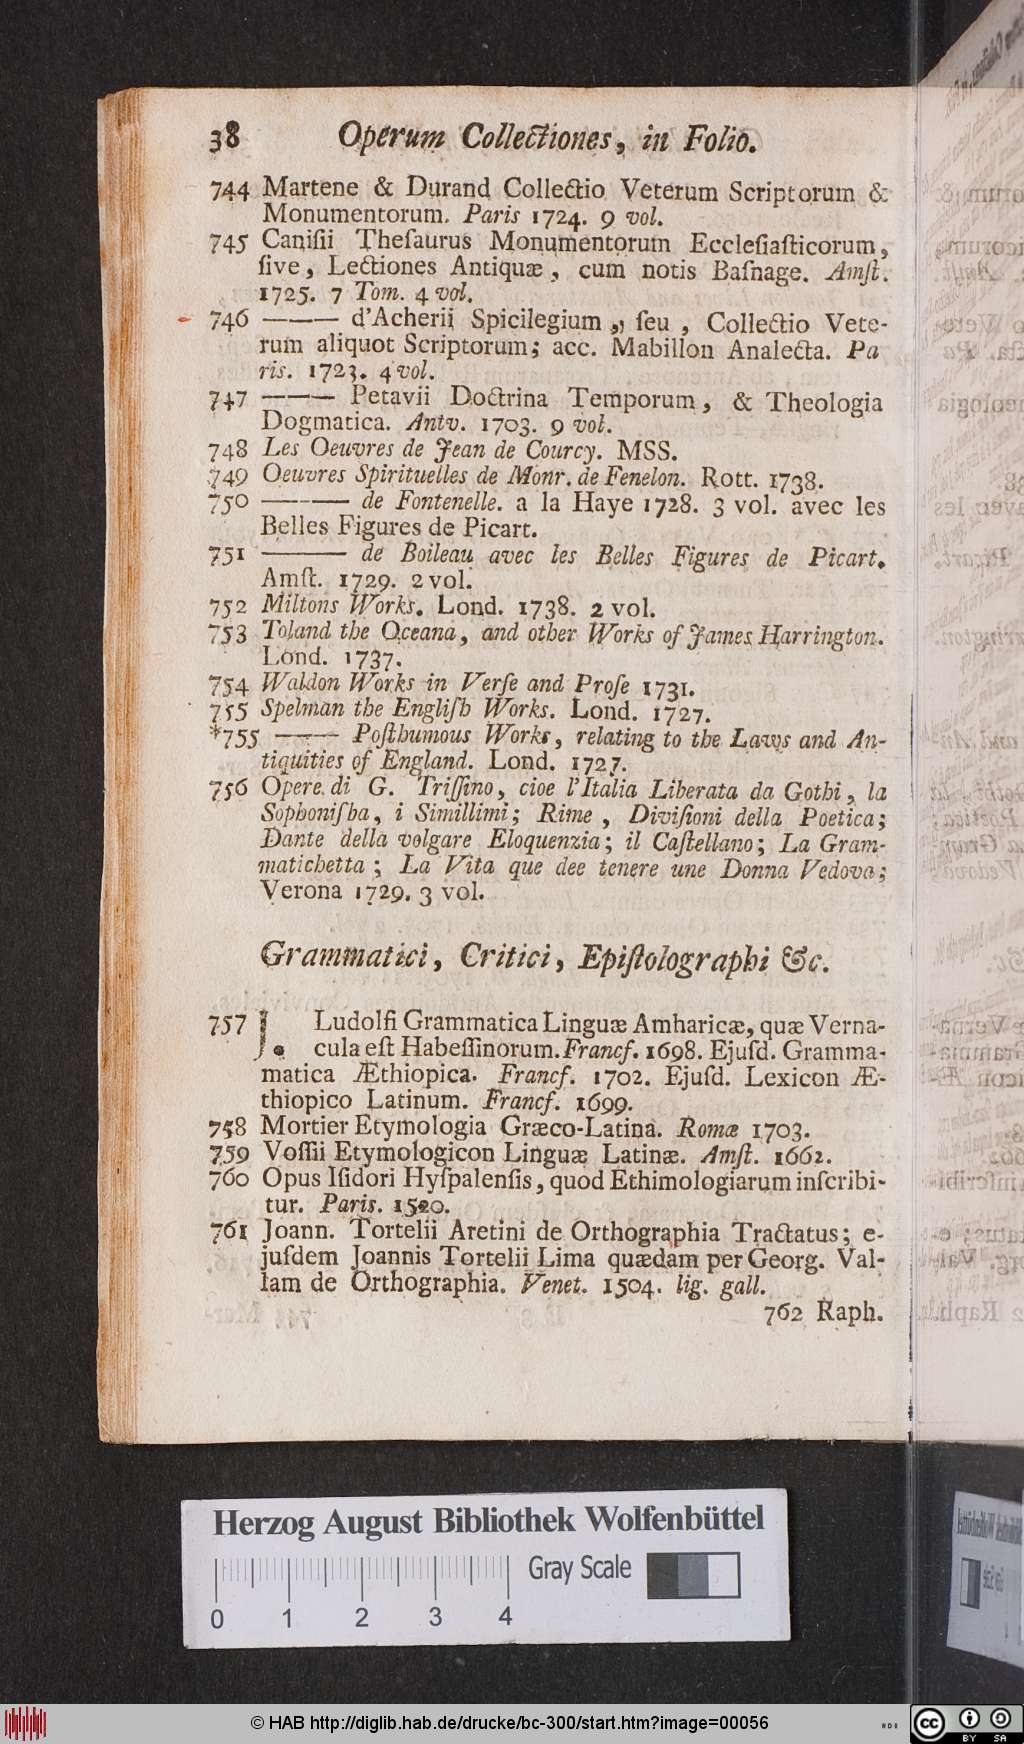 38 Operum Collectiones, in Folio.
744 Martene & Durand Collectio Veterum Scriptorum &
Monumentorum. Paris 1724. 9 vol.
745 Caniſii Theſaurus Monumentorum Eccleſiaſticorum,
ſive, Lectiones Antiquæ, cum notis Baſnage. Amſt.
1725. 7 Tom. 4 vol.
746 ——— d'Acherii Spicilegium, ſeu, Collectio Vete-
rum aliquot Scriptorum; acc. Mabillon Analecta. Pa
ris. 1723. 4 vol.
747 ——— Petavii Doctrina Temporum, & Theologia
Dogmatica. Antv. 1703. 9 vol.
748 Les Oeuvres de Jean de Courcy. MSS.
749 Oeuvres Spirituelles de Monr. de Fenelon. Rott. 1738.
750 ——— de Fontenelle. a la Haye 1728. 3 vol. avec les
Belles Figures de Picart.
751 ——— de Boileau avec les Belles Figures de Picart.
Amſt. 1729. 2 vol.
752 Miltons Works. Lond. 1738. 2 vol.
753 Toland the Oceana, and other Works of James Harrington.
Lond. 1737.
754 Waldon Works in Verſe and Proſe 1731.
755 Spelman the Engliſh Works. Lond. 1727.
*755 ——— Poſthumous Works, relating to the Laws and An-
tiquities of England. Lond. 1727.
756 Opere di G. Triſſino, cioe l'Italia Liberata da Gothi, la
Sophoniſba, i Simillimi; Rime, Diviſioni della Poetica;
Dante della volgare Eloquenzia; il Caſtellano; La Gram-
matichetta; La Vita que dee tenere une Donna Vedova;
Verona 1729. 3 vol.
Grammatici, Critici, Epiſtolographi &c.
757 J. Ludolfi Grammatica Linguæ Amharicæ, quæ Verna-
cula eſt Habeſſinorum. Francf. 1698. Ejuſd. Gramma-
matica Æthiopica. Francf. 1702. Ejuſd. Lexicon Æ-
thiopico Latinum. Francf. 1699.
758 Mortier Etymologia Græco-Latina. Romæ 1703.
759 Voſſii Etymologicon Linguæ Latinæ. Amſt. 1662.
760 Opus Iſidori Hyſpalenſis, quod Ethimologiarum inſcribi-
tur. Paris. 1520.
761 Joann. Tortelii Aretini de Orthographia Tractatus; e-
juſdem Joannis Tortelii Lima quædam per Georg. Val-
lam de Orthographia. Venet. 1504. lig. gall.
762 Raph.
Herzog August Bibliothek Wolfenbüttel
Gray Scale
0 1 2 3 4
© HAB http://diglib.hab.de/drucke/bc-300/start.htm?image=00056
cc BY SA